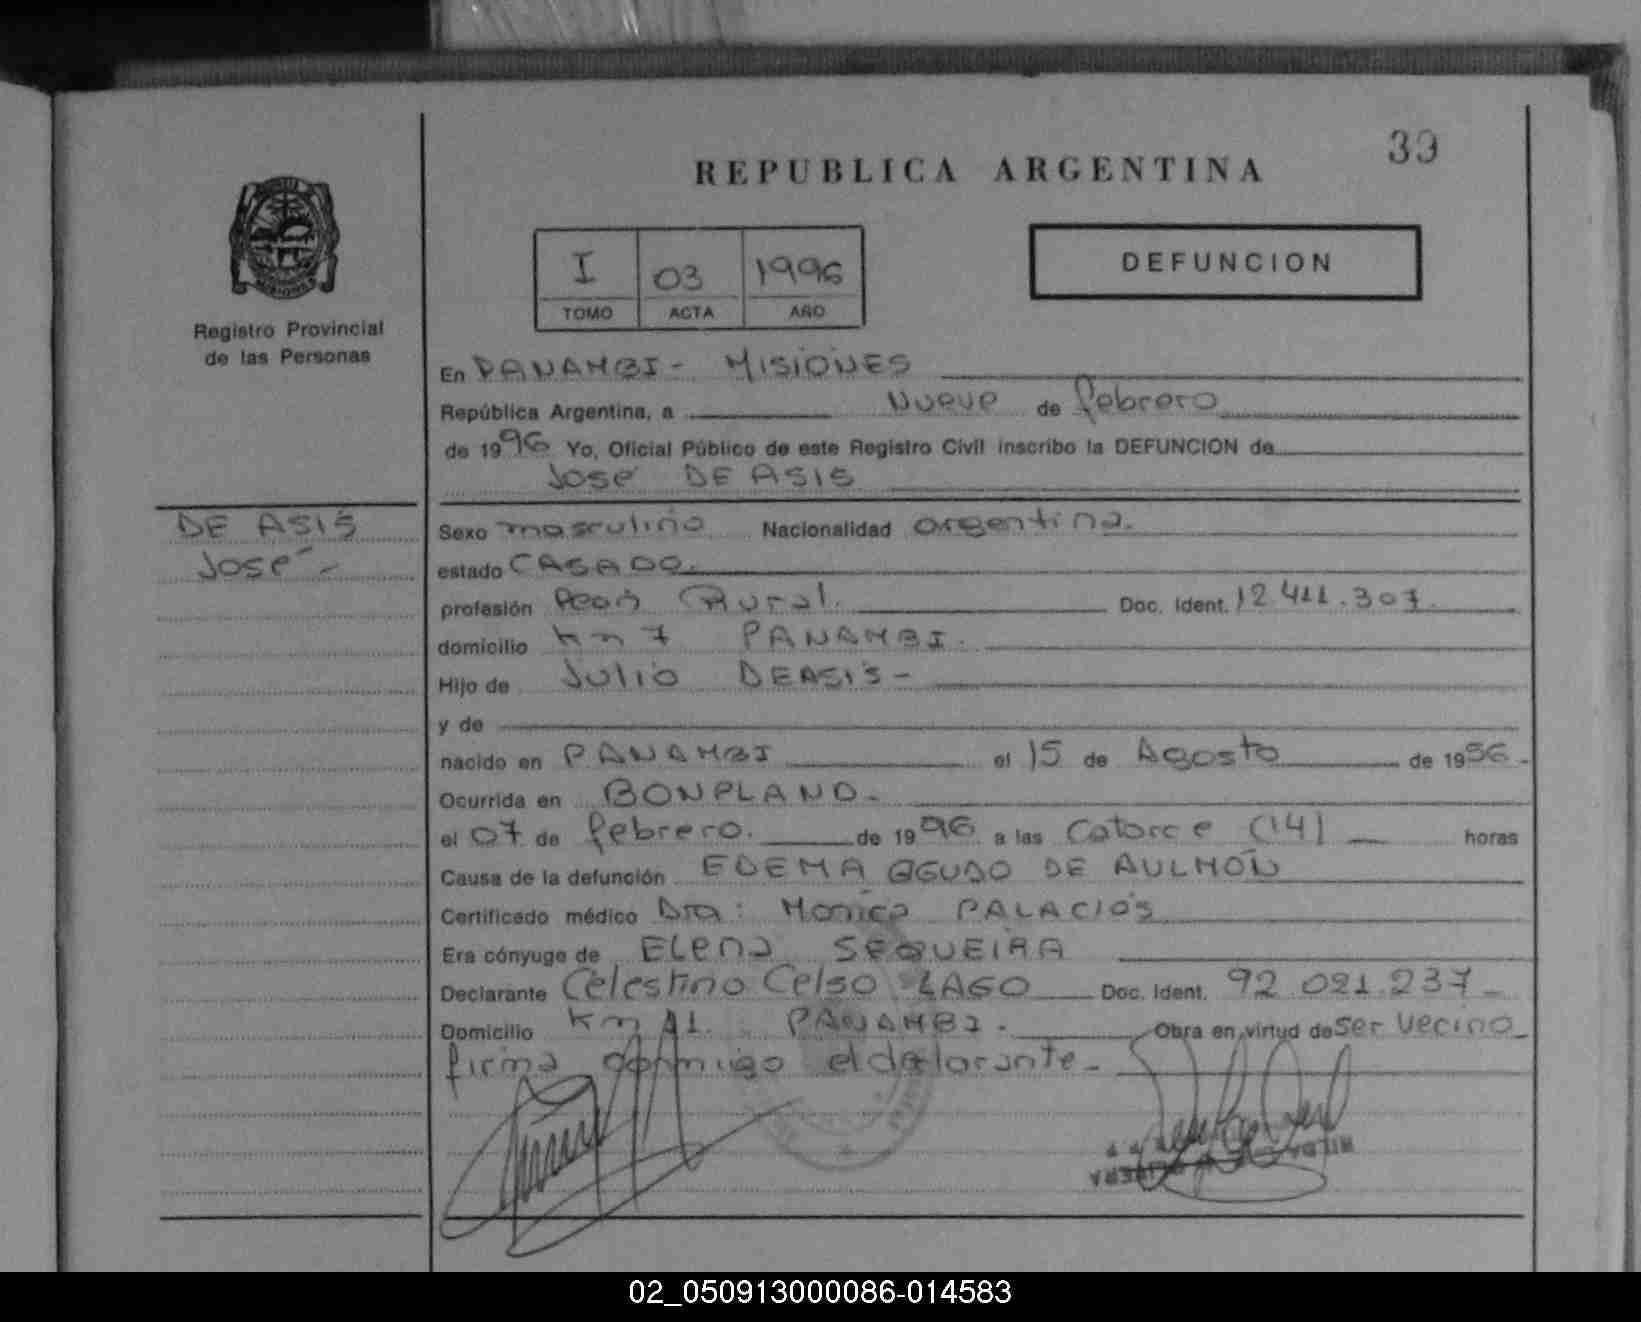 39
REPUBLICA ARGENTINA
I 03 1996
TOMO ACTA AÑO
DEFUNCION
MISIONES
Registro Provincial
de las Personas
En PANAMBI - MISIONES
República Argentina, a nueve de febrero
de 1996 Yo, Oficial Público de este Registro Civil inscribo la DEFUNCION de
José DE ASIS
DE ASIS
José -
Sexo masculino Nacionalidad argentina.
estado CASADO.
profesión Peon Rural. Doc. Ident. 12 411.307.
domicilio Km 7 PANAMBI.
Hijo de Julio DEASIS -
y de
nacido en PANAMBI el 15 de Agosto de 1956 -
Ocurrida en BONPLAND -
el 07 de febrero. de 1996 a las Catorce (14) horas
Causa de la defunción EDEMA AGUDO DE AULMÓN
Certificado médico Dra: Monica PALACIOS
Era cónyuge de ELENA SEQUEIRA
Declarante Celestino Celso LAGO Doc. Ident. 92.021.237 -
Domicilio Km 11. PANAMBI. Obra en virtud de ser vecino
firma conmigo el declarante -
02_050913000086-014583